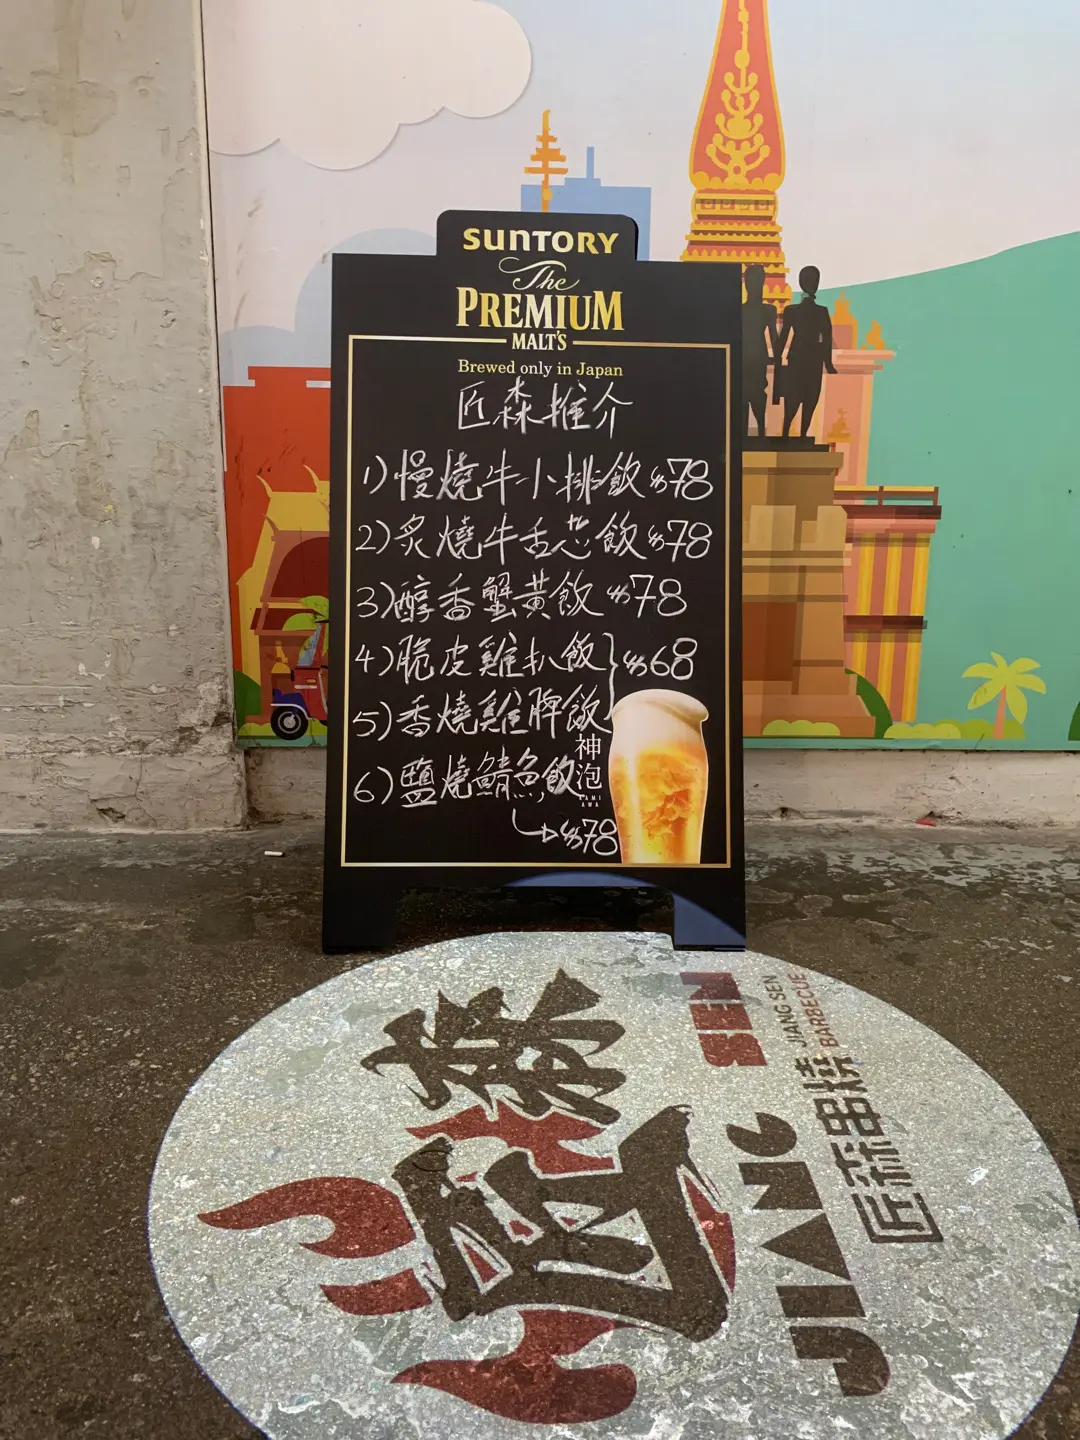 SUNTORY
The
PREMIUM
MALT'S
Brewed only in Japan
匠森推介
1) 慢燒牛小排飯 $78
2) 炙燒牛舌芯飯 $78
3) 醇香蟹黃飯 $78
4) 脆皮雞扒飯
5) 香燒雞脾飯 } $68
6) 鹽燒鯖魚飯
↳ $78
神泡
匠森
JIANG SEN
匠森串燒
JIANG SEN
BARBECUE